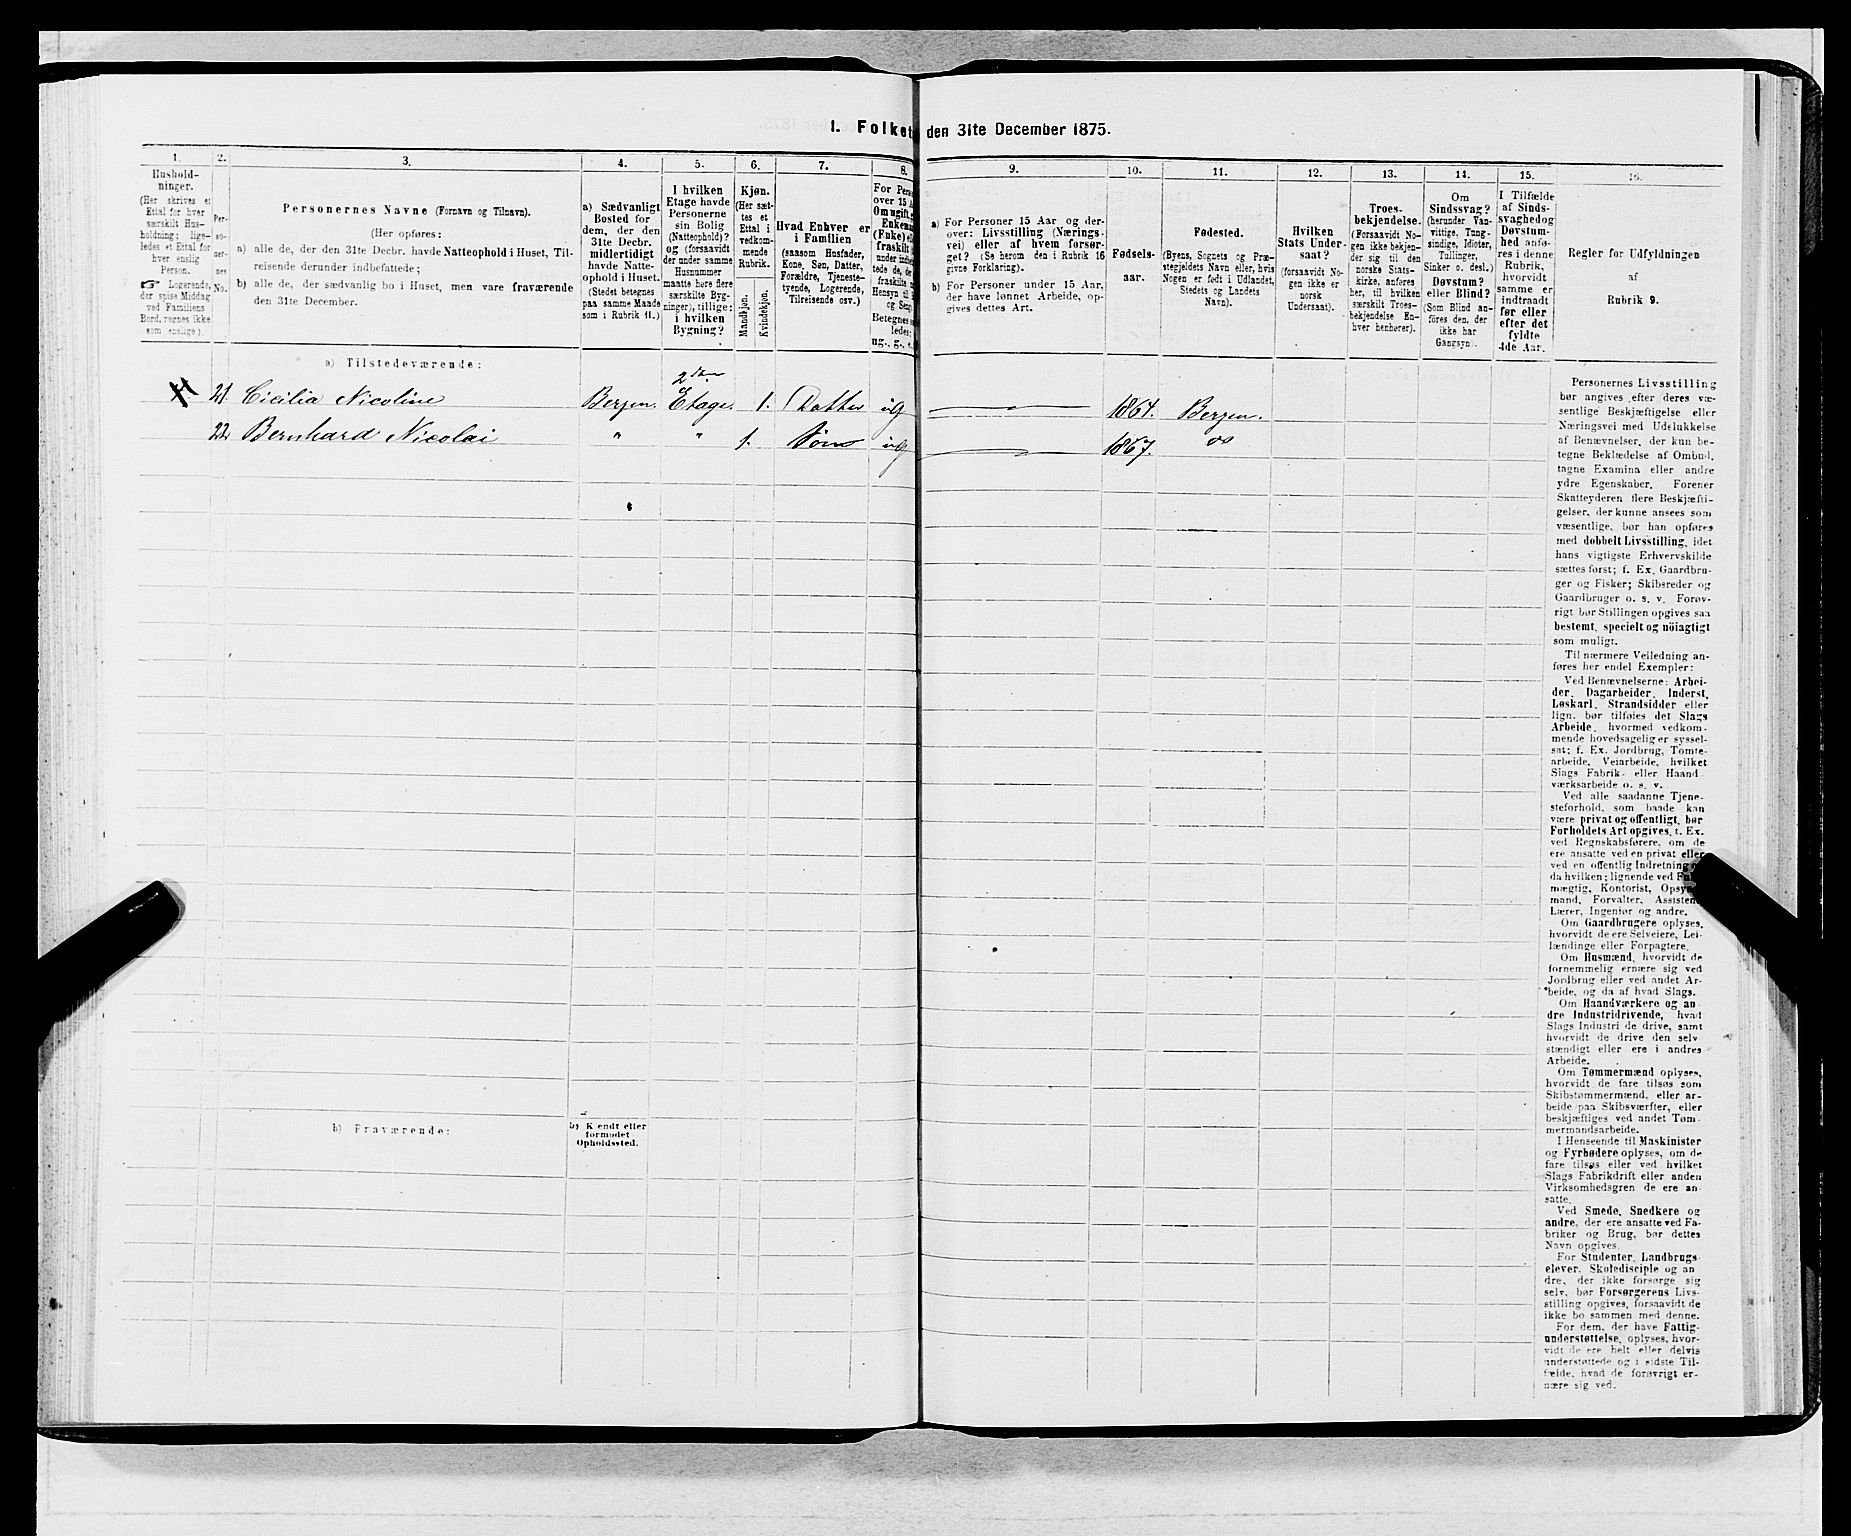 1. Folket den 31te December 1875.
1. 2. 3. 4. 5. 6. 7. 8. 9. 10. 11. 12. 13. 14. 15. 16.
Hushold-
ninger.
(Her skrives et
Ettal for hver
særskilt Hus-
holdning; lige-
ledes et Ettal for
hver enslig
Person.
☞ Logerende,
der spise Middag
ved Familiens
Bord, regnes ikke
som enslige).
Per-
so-
ner-
nes
No.
Personernes Navne (Fornavn og Tilnavn).
(Her opføres:
a) alle de, der den 31te Decbr. havde Natteophold i Huset, Til-
reisende derunder indbefattede;
b) alle de, der sædvanlig bo i Huset, men vare fraværende
den 31te December.
a) Sædvanligt
Bosted for
dem, der den
31te Decbr.
midlertidigt
havde Natte-
ophold i Huset.
(Stedet betegnes
paa samme Maade
som i Rubrik 11.)
I hvilken
Etage havde
Personerne
sin Bolig
(Natteophold)?
og (forsaavidt
der under samme
Husnummer
maatte høre flere
særskilte Byg-
ninger), tillige:
i hvilken
Bygning?
Kjøn.
(Her sæt-
tes et
Ettal i
vedkom-
mende
Rubrik.
Mandkjøn.
Kvindekjøn.
Hvad Enhver er
i Familien
(saasom Husfader,
Kone, Søn, Datter,
Forældre, Tjeneste-
tyende, Logerende,
Tilreisende osv.)
For Pers
over 15 A
Om ugift, g
Enkem
(Enke) el
fraskilt
under indbe
tede de, de
fraskilte
Hensyn til
og Seng
Betegnes s
ledes:
ug., g., e.
a) For Personer 15 Aar og der-
over: Livsstilling (Nærings-
vei) eller af hvem forsør-
get? (Se herom den i Rubrik 16
givne Forklaring).
b) For Personer under 15 Aar,
der have lønnet Arbeide, op-
gives dettes Art.
Fødsels-
aar.
Fødested.
(Byens, Sognets og Præ-
stegjeldets Navn eller, hvis
Nogen er født i Udlandet,
Stedets og Landets
Navn).
Hvilken
Stats Under-
saat?
(forsaavidt No-
gen ikke er
norsk
Undersaat).
Troes-
bekjendelse.
(Forsaavidt No-
gen ikke bekjen-
der sig til den
norske Stats-
kirke, anføres
her, til hvilken
særskilt Troes-
bekjendelse En-
hver henhører).
Om
Sindssvag?
(herunder Van-
vittige, Tung-
sindige, Idioter,
Tullinger,
Sinker o. desl.)
Døvstum?
eller Blind?
(Som Blind an-
føres den, der
ikke har
Gangsyn).
I Tilfælde
af Sinds-
svaghed og
Døvstum-
hed anfø-
res i denne
Rubrik,
hvorvidt
samme er
indtraadt
før eller
efter det
fyldte
4de Aar.
Regler for Udfyldningen
af
Rubrik 9.
a) Tilstedeværende:
21. Cicilia Nicoline Bergen. 2den Etage. 1. Datter ug 1864. Bergen.
22. Bernhard Nicolai " " 1. Søn ug 1867. do
b) Fraværende:
b) Kendt eller
formodet
Opholdssted.
Personernes Livsstilling
bør angives efter deres væ-
sentlige Beskjæftigelse eller
Næringsvei med Udelukkelse
af Benævnelser, der kun be-
tegne Beklædelse af Ombud,
tagne Examina eller andre
ydre Egenskaber. Forener
Skatteyderen flere Beskjæfti-
gelser, der kunne ansees som
væsentlige, bør han opføres
med dobbelt Livsstilling, idet
hans vigtigste Erhvervskilde
sættes først; f. Ex. Gaardbru-
ger og Fisker; Skibsreder og
Gaardbruger o. s. v. Forøv-
rigt bør Stillingen opgives saa
bestemt, specielt og nöiagtigt
som muligt.
Til nærmere Veiledning an-
føres her endel Exempler:
Ved Benævnelserne: Arbei-
der, Dagarbeider, Inderst,
Løskarl, Strandsidder eller
lign. bør tilføies det Slags
Arbeide, hvormed vedkom-
mende hovedsagelig er syssel-
sat; f. Ex. Jordbrug, Tomte-
arbeide, Veiarbeide, hvilket
Slags Fabrik- eller Haand
værksarbeide o. s. v.
Ved alle saadanne Tjene-
steforhold, som baade kan
være privat og offentligt, bør
Forholdets Art opgives, t. Ex.
ved Regnskabsførere, om de
ere ansatte ved en privat eller
ved en offentlig Indretning
da hvilken; lignende ved Fu
mægtig, Kontorist, Opsy
mand, Forvalter, Assisten
Lærer, Ingeniør og andre.
Om Gaardbrugere oplyses,
hvorvidt de ere Selveiere, Lei-
lændinge eller Forpagtere.
Om Husmænd, hvorvidt de
fornemmelig ernære sig ved
Jordbrug eller ved andet Ar-
beide, og da af hvad Slags.
Om Haandværkere og an
dre Industridrivende, hvad
Slags Industri de drive, samt
hvorvidt de drive den selv
stændigt eller ere i andres
Arbeide.
Om Tømmermænd oplyses,
hvorvidt de fare tilsøs som
Skibstømmermænd, eller ar-
beide paa Skibsværfter, eller
beskjæftiges ved andet Tøm-
mermandsarbeide.
I Henseende til Maskinister
og Fyrbødere oplyses, om de
fare tilsøs eller ved hvilket
Slags Fabrikdrift eller anden
Virksomhedsgren de ere an-
satte.
Ved Smede, Snedkere og
andre, der ere ansatte ved Fa-
briker og Brug, bør dettes
Navn opgives.
For Studenter, Landbrugs-
elever, Skoledisciple og an
dre, der ikke forsørge sig
selv, bør Forsørgerens Livs-
stilling opgives, forsaavidt de
ikke bo sammen med denne.
For dem, der have Fattig-
understøttelse, oplyses, hvor-
vidt de ere helt eller delvis
understøttede og i sidste Til-
fælde, hvad de forøvrigt er-
nære sig ved.